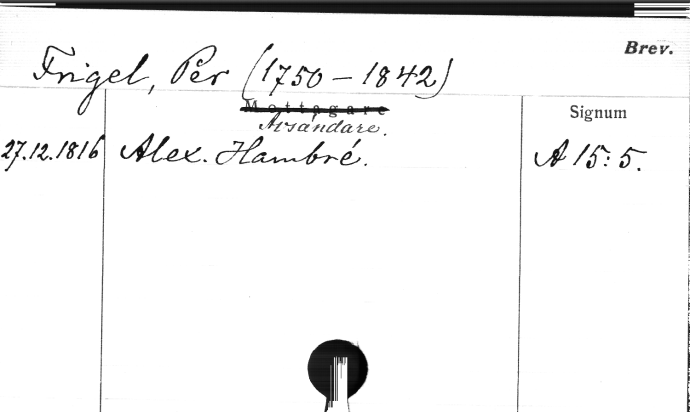 Brev.
Frigel, Për (1750 – 1842)
Mottagare
Avsändare.
Signum
27.12.1816 Alex. Hambré. A 15:5.